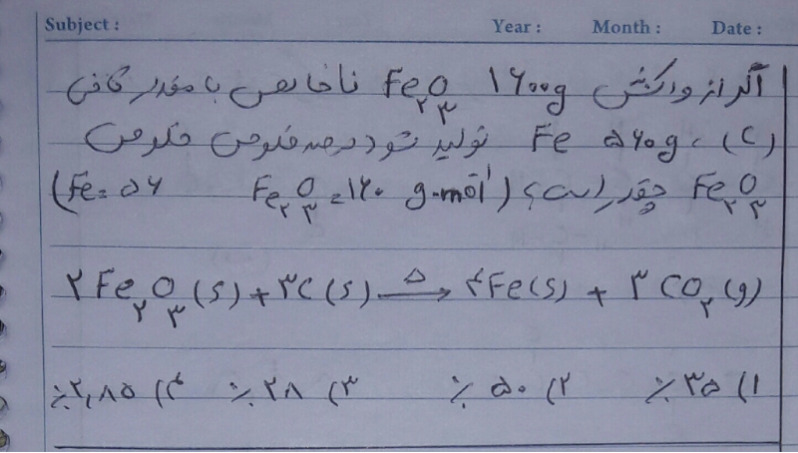 Subject : Year : Month : Date :
اگر از واکنش ۱۶۰۰g Fe۲O۳ ناخالص با مقدار کافی
(C)، ۵۶۰g Fe تولید شود درصد خلوص
Fe۲O۳ چقدر است؟ (Fe۲O۳=۱۶۰ g.mol⁻¹ Fe=۵۶)
۲Fe۲O۳(s)+۳C(s) →Δ ۴Fe(s) + ۳CO۲(g)
۱) ۳۵٪ ۲) ۵۰٪ ۳) ۲۸٪ ۴) ۲,۸۵٪